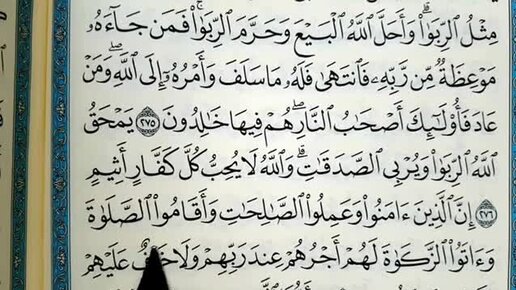 مِثْلُ ٱلرِّبَوٰا۟ ۗ وَأَحَلَّ ٱللَّهُ ٱلْبَيْعَ وَحَرَّمَ ٱلرِّبَوٰا۟ ۚ فَمَن جَآءَهُۥ
مَوْعِظَةٌ مِّن رَّبِّهِۦ فَٱنتَهَىٰ فَلَهُۥ مَا سَلَفَ وَأَمْرُهُۥٓ إِلَى ٱللَّهِ ۖ وَمَنْ
عَادَ فَأُو۟لَٰٓئِكَ أَصْحَٰبُ ٱلنَّارِ ۖ هُمْ فِيهَا خَٰلِدُونَ ٢٧٥ يَمْحَقُ
ٱللَّهُ ٱلرِّبَوٰا۟ وَيُرْبِى ٱلصَّدَقَٰتِ ۗ وَٱللَّهُ لَا يُحِبُّ كُلَّ كَفَّارٍ أَثِيمٍ
٢٧٦ إِنَّ ٱلَّذِينَ ءَامَنُوا۟ وَعَمِلُوا۟ ٱلصَّٰلِحَٰتِ وَأَقَامُوا۟ ٱلصَّلَوٰةَ
وَءَاتَوُا۟ ٱلزَّكَوٰةَ لَهُمْ أَجْرُهُمْ عِندَ رَبِّهِمْ وَلَا خَوْفٌ عَلَيْهِمْ